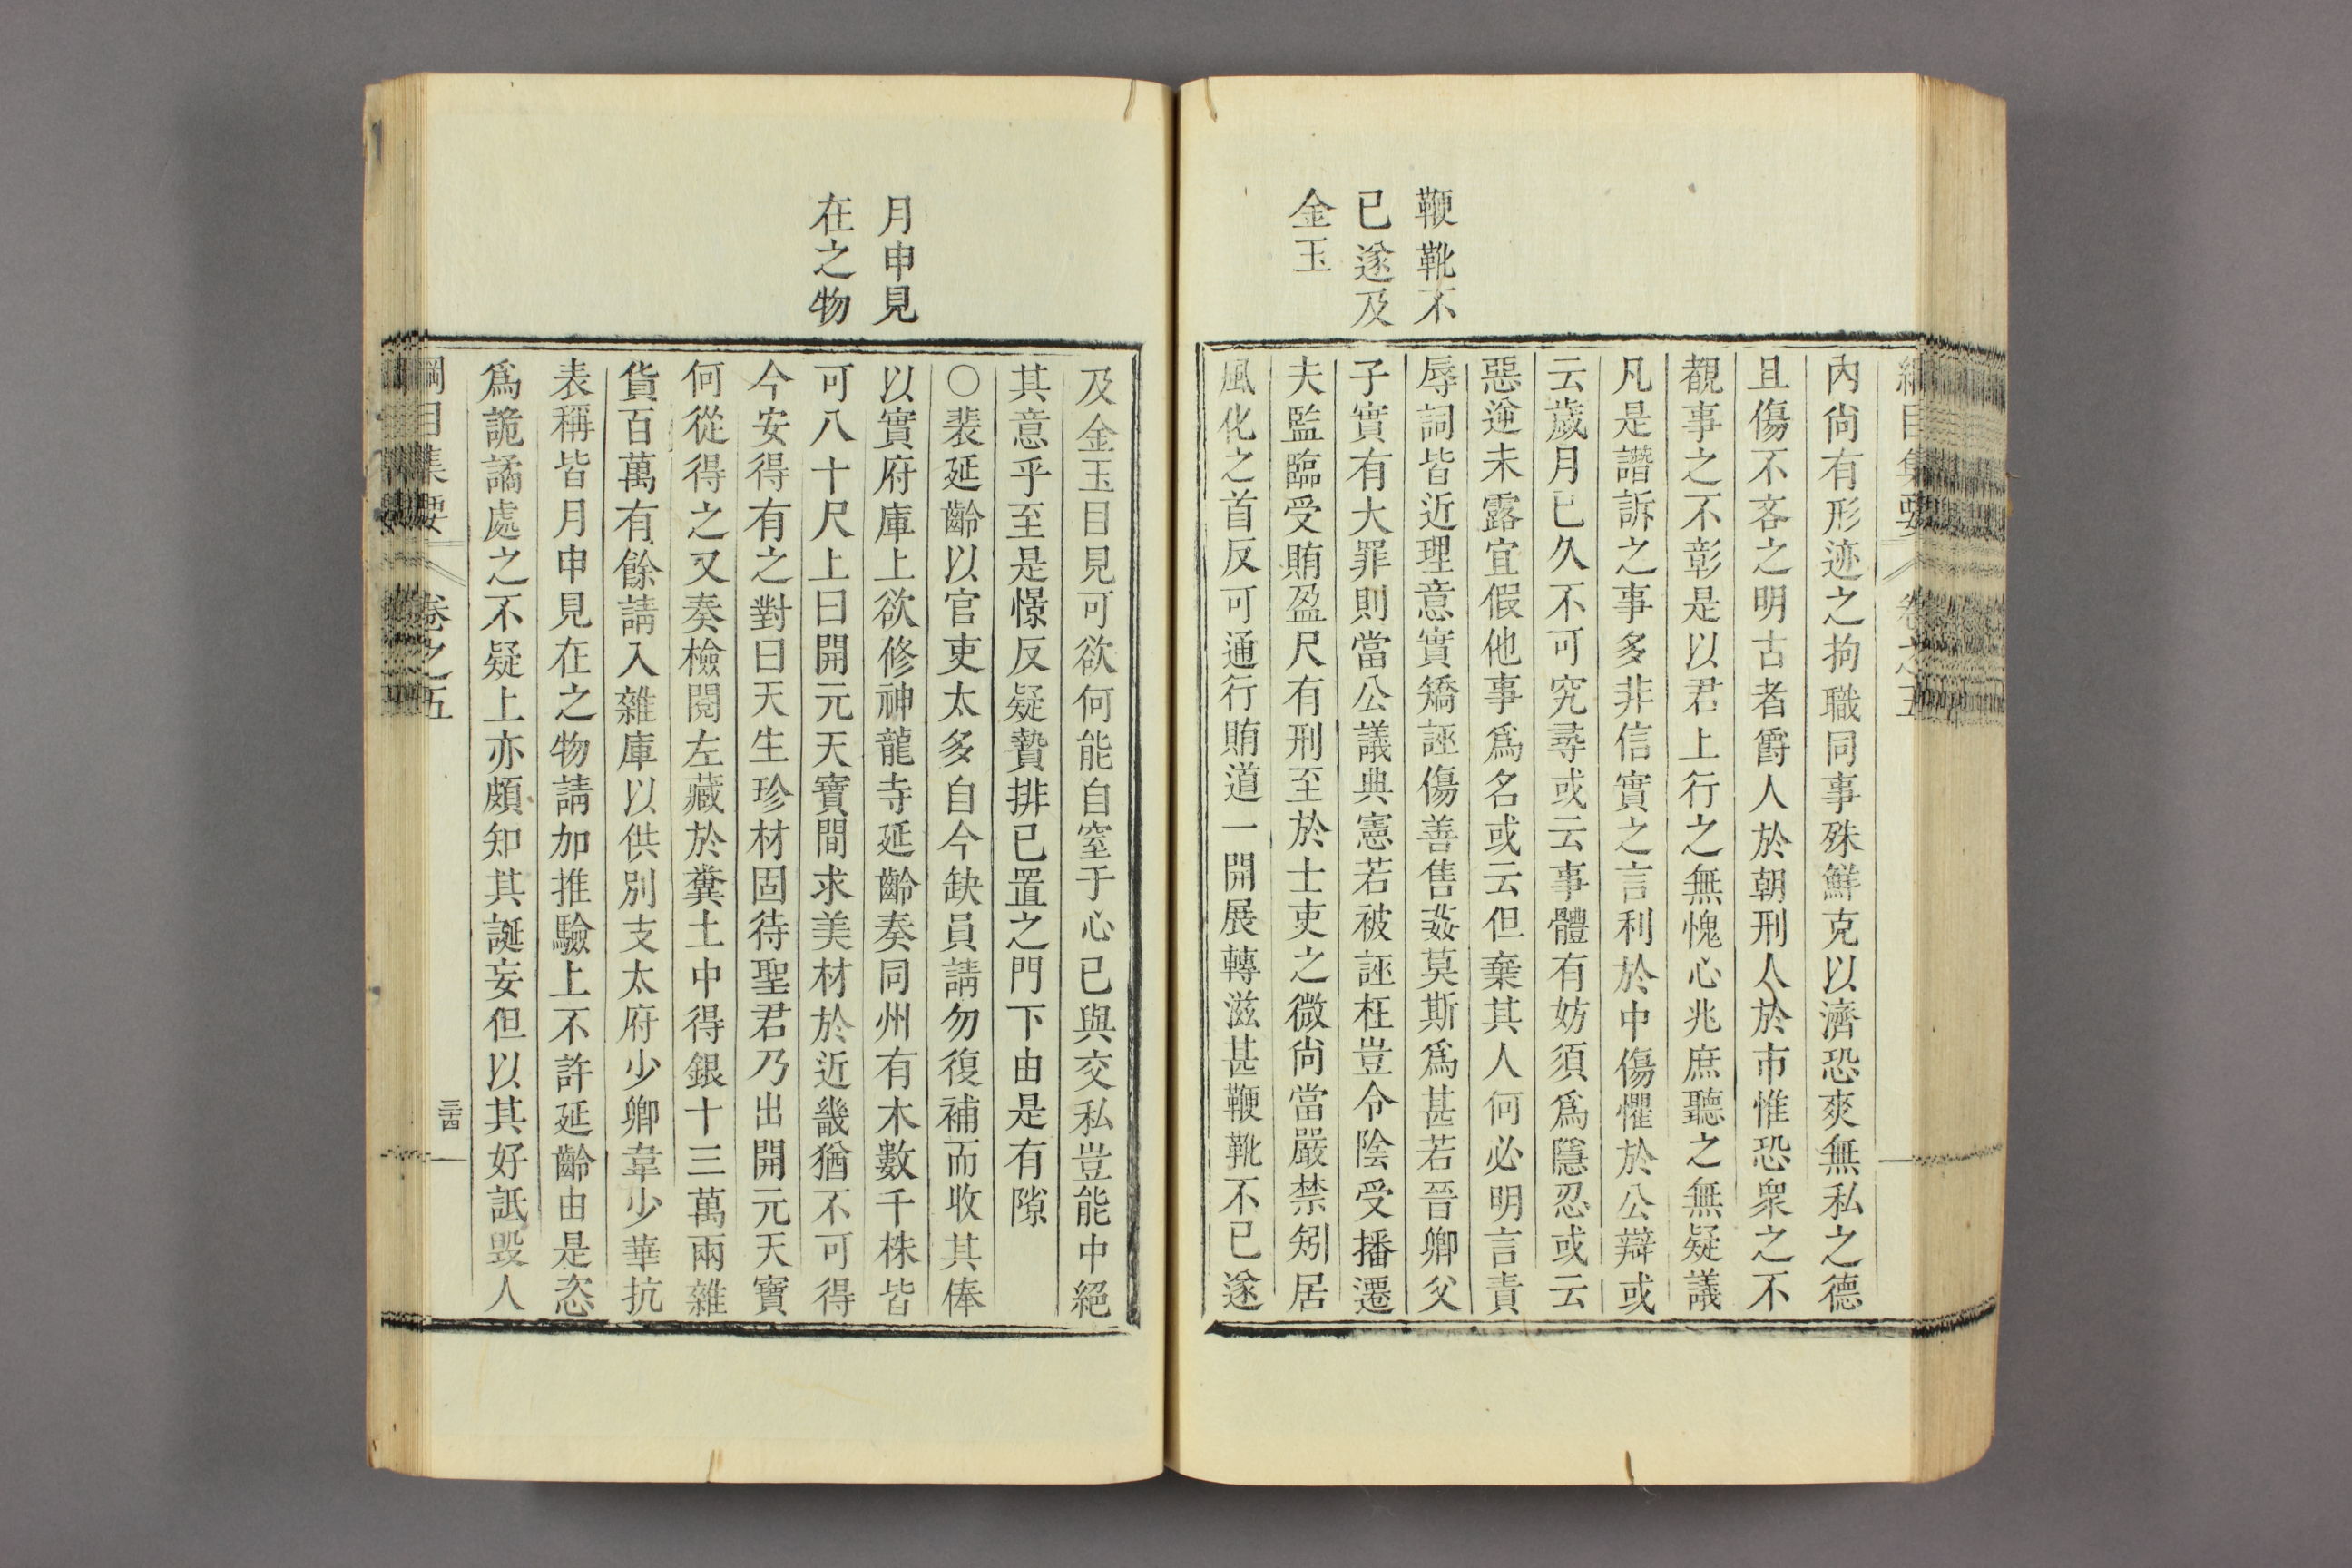 鞭靴不
已遂及
金玉
內尙有形迹之拘職同事殊鮮克以濟恐爽無私之德
且傷不吝之明古者爵人於朝刑人於市惟恐衆之不
覩事之不彰是以君上行之無愧心兆庶聽之無疑議
凡是譖訴之事多非信實之言利於中傷懼於公辯或
云歲月已久不可究尋或云事體有妨須爲隱忍或云
惡逆未露宜假他事爲名或云但棄其人何必明言責
辱詞皆近理意實矯誣傷善售姦莫斯爲甚若晉卿父
子實有大罪則當公議典憲若被誣枉豈令陰受播遷
夫監臨受賄盈尺有刑至於士吏之微尙當嚴禁矧居
風化之首反可通行賄道一開展轉滋甚鞭靴不已遂
月申見
在之物
及金玉目見可欲何能自窒于心已與交私豈能中絕
其意乎至是憬反疑贄排已置之門下由是有隙
○裴延齡以官吏太多自今缺員請勿復補而收其俸
以實府庫上欲修神龍寺延齡奏同州有木數千株皆
可八十尺上曰開元天寶間求美材於近畿猶不可得
今安得有之對曰天生珍材固待聖君乃出開元天寶
何從得之又奏檢閱左藏於糞土中得銀十三萬兩雜
貨百萬有餘請入雜庫以供別支太府少卿韋少華抗
表稱皆月申見在之物請加推驗上不許延齡由是恣
爲詭譎處之不疑上亦頗知其誕妄但以其好詆毀人
綱目集要 卷之五 三十四